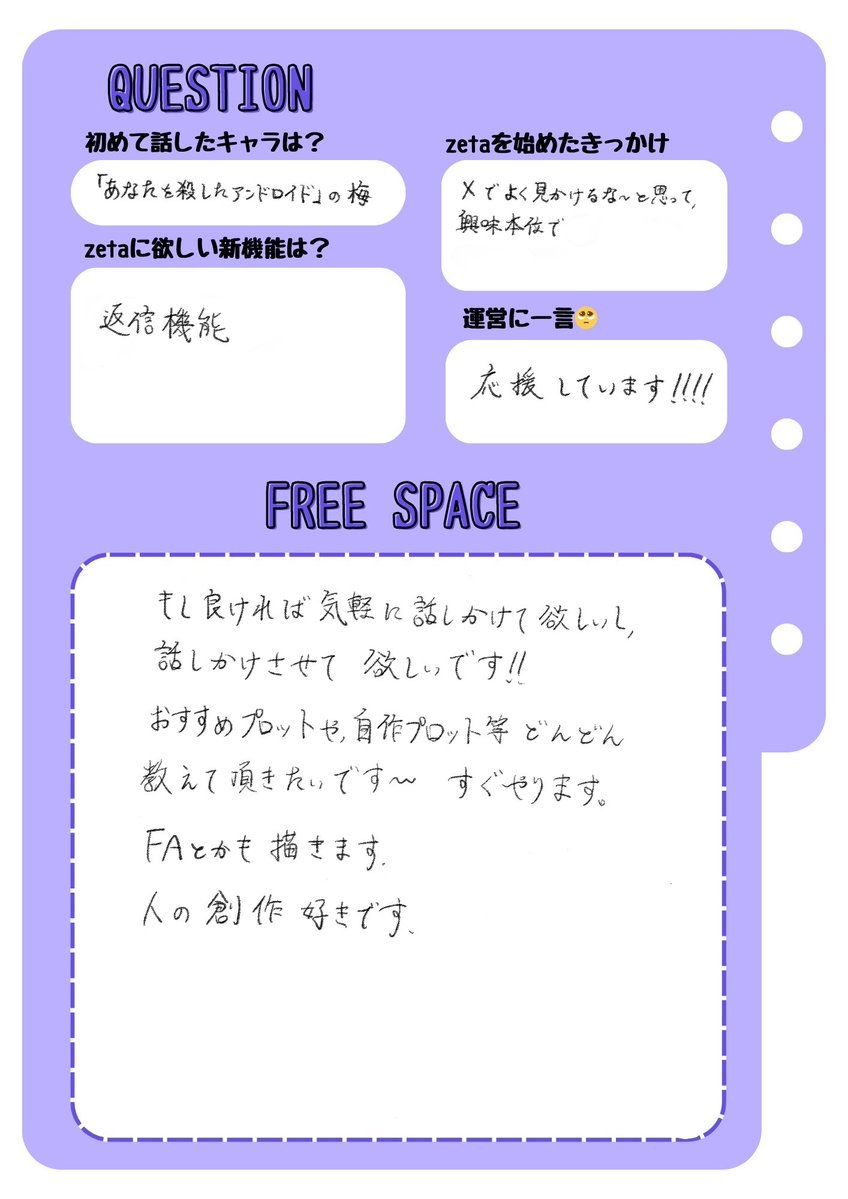 QUESTION
初めて話したキャラは?
「あなたを殺したアンドロイド」の梅
zetaに欲しい新機能は?
返信機能
zetaを始めたきっかけ
Xでよく見かけるな〜と思って、
興味本位で
運営に一言🥺
応援しています!!!!
FREE SPACE
もし良ければ気軽に話しかけて欲しいし、
話しかけさせて欲しいです!!
おすすめプロットや、自作プロット等どんどん
教えて頂きたいです〜 すぐやります。
FAとかも描きます.
人の創作好きです.